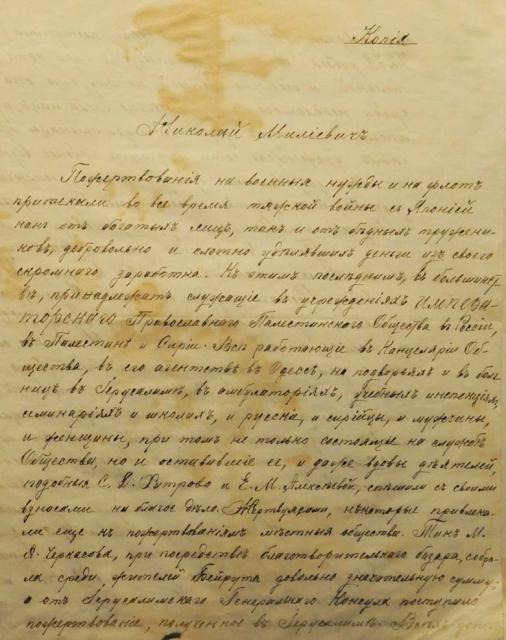 Копія
Николай Миліевичъ
Пожертвованія на военныя нужды и на флотъ
притекали во все время тяжкой войны съ Японіей
какъ отъ богатыхъ лицъ, такъ и отъ бѣдныхъ тружени-
ковъ, добровольно и охотно удѣлявшихъ деньги изъ своего
скромнаго заработка. Къ этимъ послѣднимъ, въ большинст-
вѣ, принадлежатъ служащіе въ учрежденіяхъ ИМПЕРА-
ТОРСКАГО Православнаго Палестинскаго Общества въ Россіи,
въ Палестинѣ и Сиріи. Всѣ работающіе въ Канцеляріи Об-
щества, въ его агентствѣ въ Одессѣ, на подворьяхъ и въ боль-
ницѣ въ Іерусалимѣ, въ амбулаторіяхъ, учебныхъ инспекціяхъ,
семинаріяхъ и школахъ, и русскіе, и сирійцы, и мужчины,
и женщины, при томъ не только состоящіе на службѣ
Общества, но и оставившіе ее, и даже вдовы дѣятелей,
подобныя С. Д. Хитрово и Е. М. Алексѣевой, спѣшили съ своими
взносами на благое дѣло. Жертвуя сами, нѣкоторые привлека-
ли еще къ пожертвованіямъ мѣстныя общества. Такъ М.
А. Черкасова, при посредствѣ благотворительнаго базара, собра-
ла среди жителей Бейрута довольно значительную сумму,
а отъ Іерусалимскаго Генеральнаго Консула поступило
пожертвованіе, полученное въ Іерусалимѣ. Всѣхъ